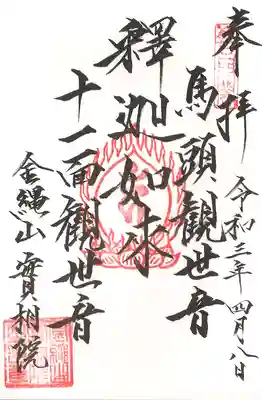 奉拝
令和三年四月八日
馬頭観世音
釋迦如来
十一面観世音
金縄山 實相院